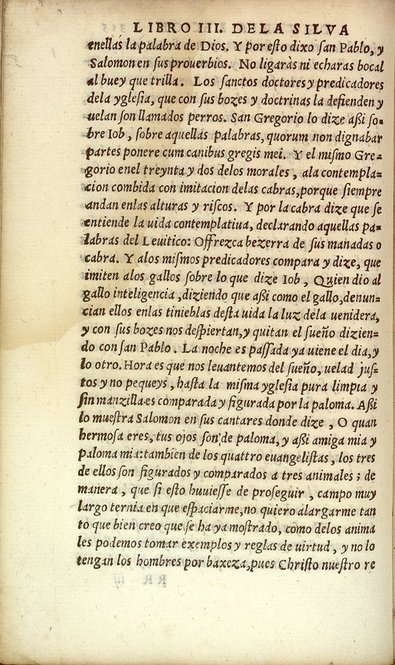 LIBRO III. DE LA SILVA
enellas la palabra de Dios. Y por esto dixo san Pablo, y
Salomon en sus prouerbios. No ligaràs ni echaras bocal
al buey que trilla. Los sanctos doctores y predicadores
dela yglesia, que con sus bozes y doctrinas la defienden y
uelan son llamados perros. San Gregorio lo dize aßi so-
bre Iob, sobre aquellas palabras, quorum non dignabar
partes ponere cum canibus gregis mei. Y el mismo Gre-
gorio enel treynta y dos delos morales, ala contempla-
cion combida con imitacion delas cabras, porque siempre
andan enlas alturas y riscos. Y por la cabra dize que se
entiende la uida contemplatiua, declarando aquellas pa-
labras del Leuitico: Offrezca bezerra de sus manadas o
cabra. Y alos mismos predicadores compara y dize, que
imiten alos gallos sobre lo que dize Iob, Quien dio al
gallo inteligencia, diziendo que aßi como el gallo, denun-
cian ellos enlas tinieblas desta uida la luz dela uenidera,
y con sus bozes nos despiertan, y quitan el sueño dizien-
do con san Pablo. La noche es passada ya uiene el dia, y
lo otro. Hora es que nos leuantemos del sueño, uelad jus-
tos y no pequeys, hasta la misma yglesia pura limpia y
sin manzilla es comparada y figurada por la paloma. Aßi
lo muestra Salomon en sus cantares donde dize, O quan
hermosa eres, tus ojos son de paloma, y aßi amiga mia y
paloma mia: tambien de los quattro euangelistas, los tres
de ellos son figurados y comparados a tres animales; de
manera, que si esto huuiesse de proseguir, campo muy
largo ternia en que espaciarme, no quiero alargarme tan
to que bien creo que se ha ya mostrado, como delos anima
les podemos tomar exemplos y reglas de uirtud, y no lo
tengan los hombres por baxeza, pues Christo nuestro re